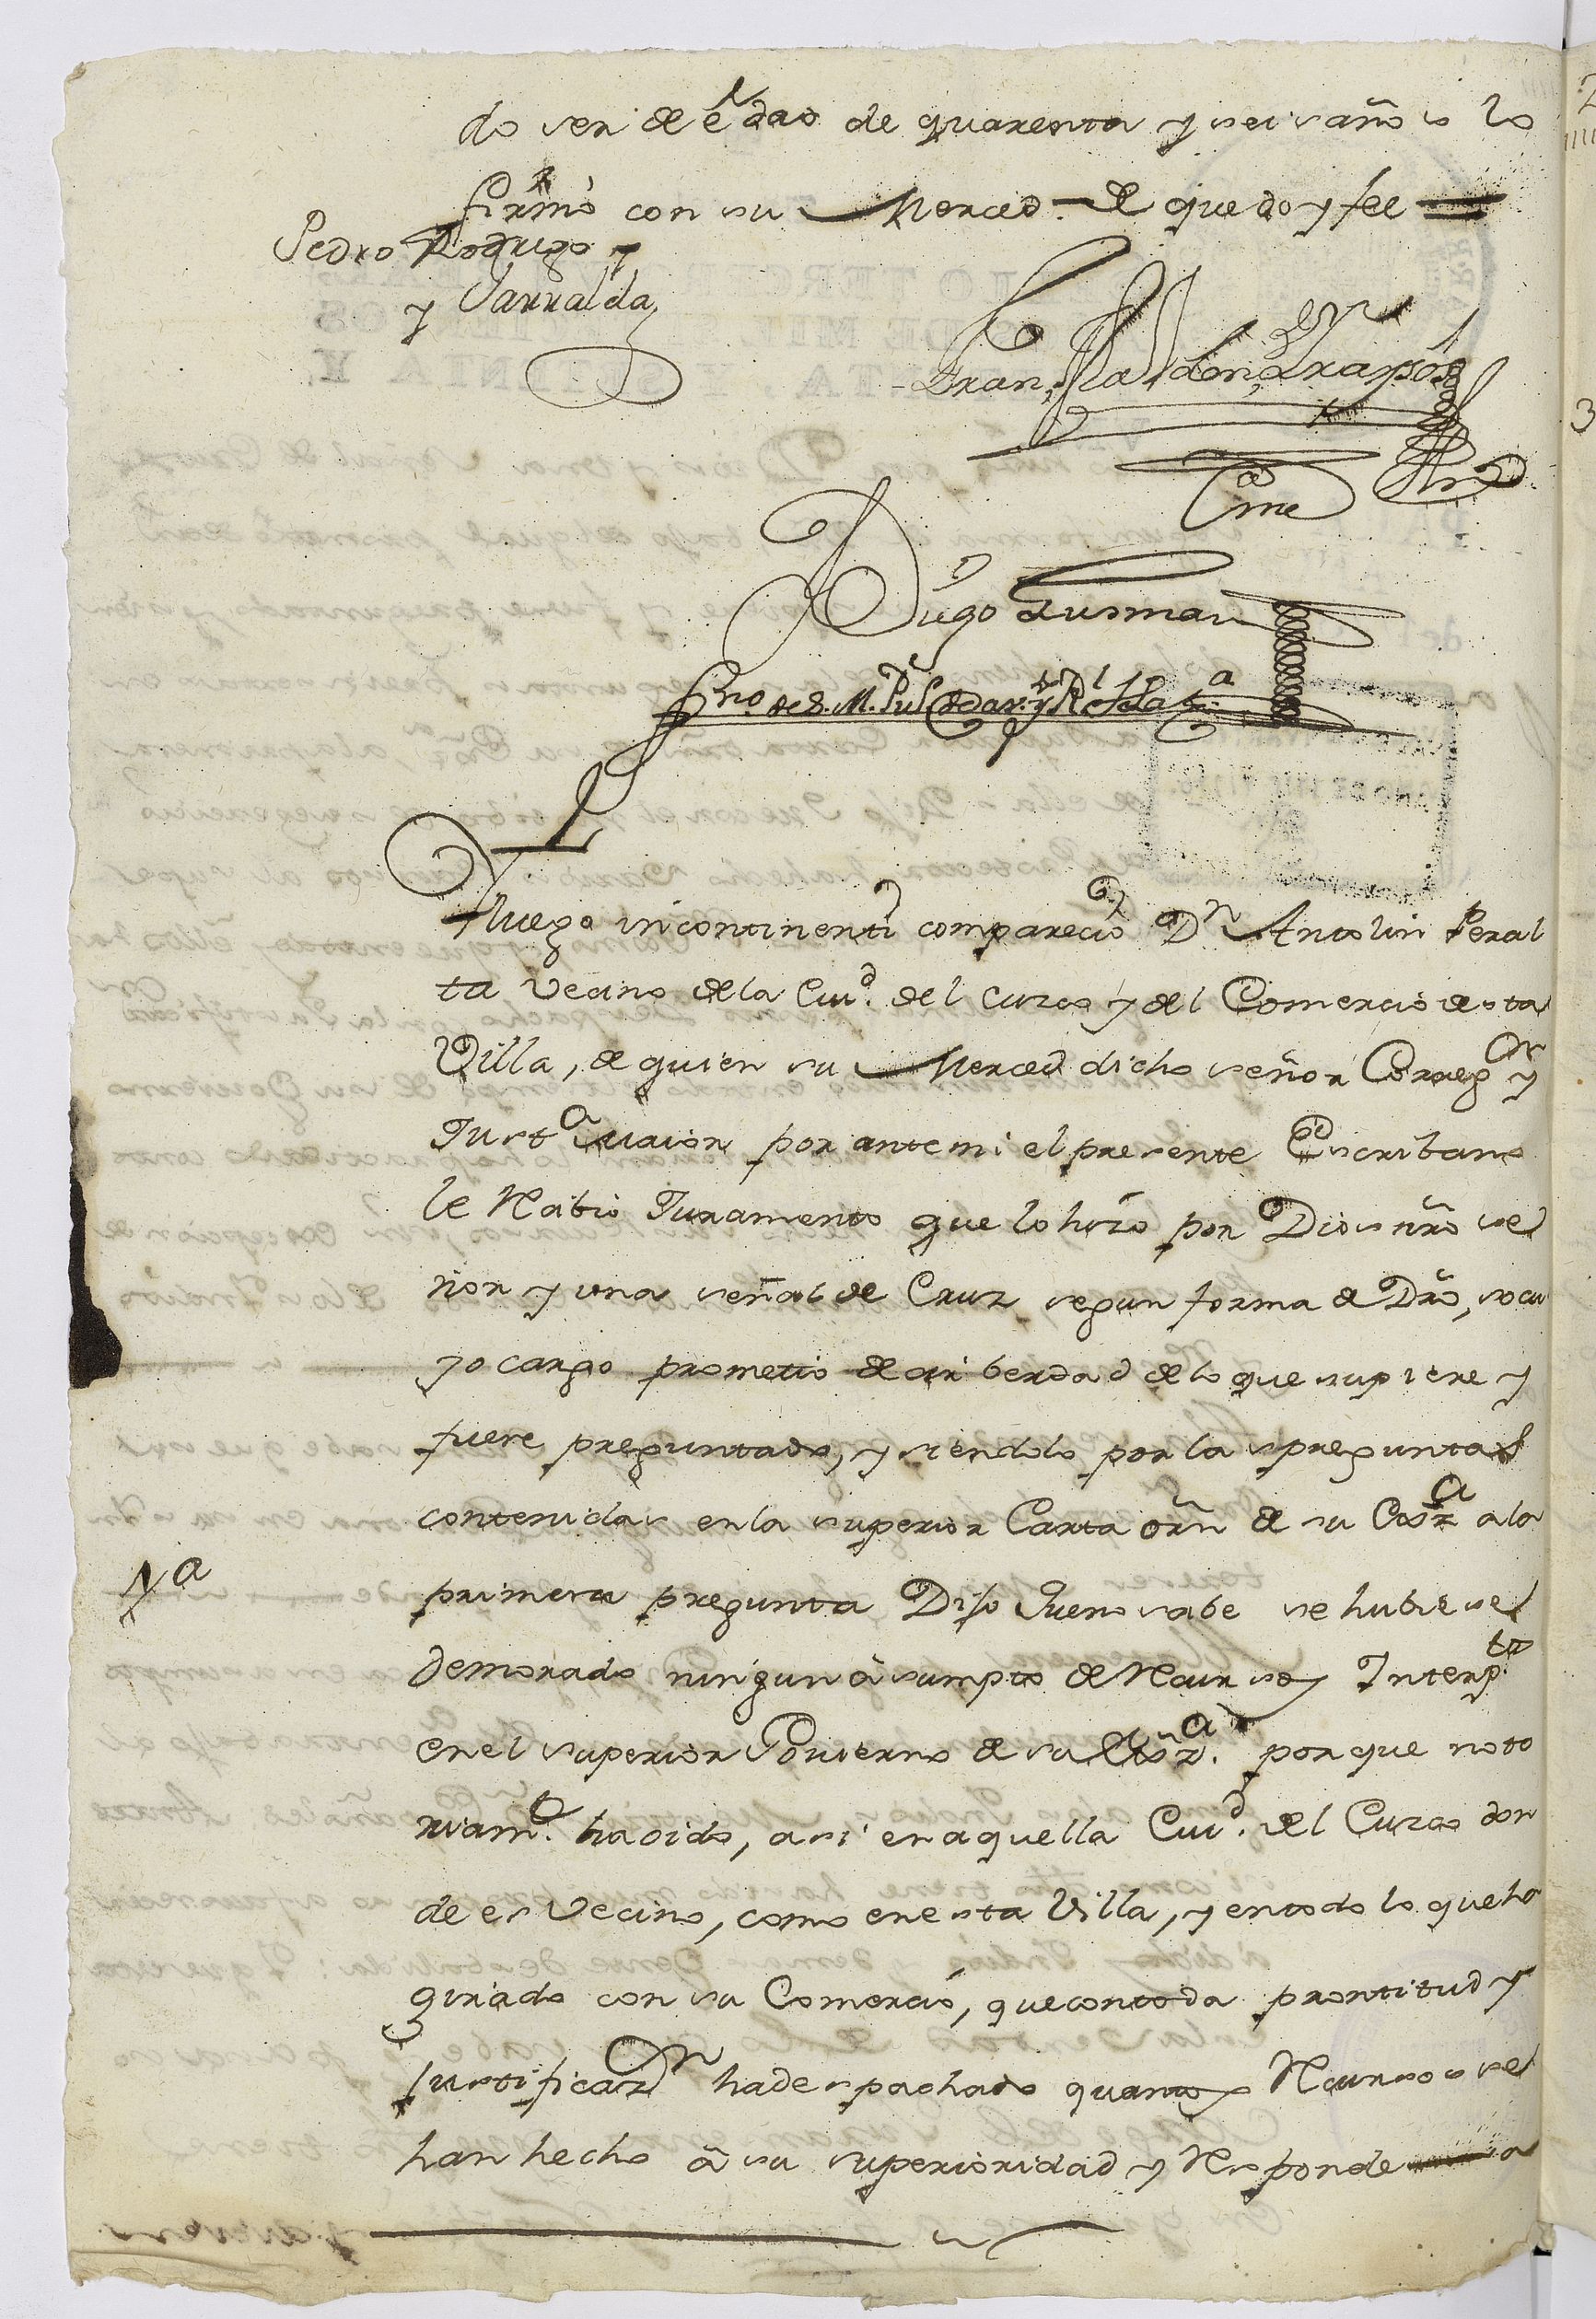 do ser de edad de quarenta y seis años lo
firmò con su Merced de que doy fee
Pedro Rodrigo
y Sarralda
Diego Gusman
Luego incontinenti comparecio Dn Antolin Peral
ta Vecino de la Ciud. del Cuzco y del Comercio desta
Villa, de quien su Merced dicho señor Corregor y
Justa maior por ante mi el presente Escribano
le Resibio Juramento que lo hizo por Dios nrõ se
ñor y una señal de Cruz segun forma de Drõ, so cu
yo cargo prometio decir berdad de lo que supiere y
fuere preguntado, y siendolo por las preguntas
contenidas en la superior Carta orñ de su Exa a la
1a
primera pregunta Dijo Que no sabe se hubiese
demorado ningun asumpto de Recurso y
en el superior Govierno de su Exa. porque noto
riamte. ha oido, asi en aquella Ciud. del Cuzco don
de es Vecino, como en esta Villa, y en todo lo que ha
girado con su Comercio, que con toda prontitud y
justificazn ha despachado quantos Recursos se
han hecho â su superioridad y Responde